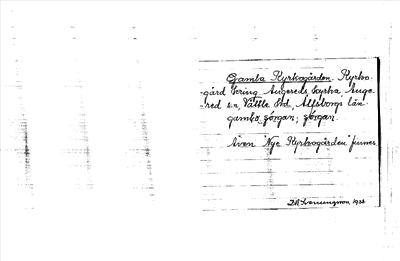 Gamba Kyrkogården. Kyrko-
-gård kring Angereds kyrka Ange-
-red sn, Vättle hd. Älfsborgs län
gamba
Även "Nya Kyrkogården" finnes.
1931